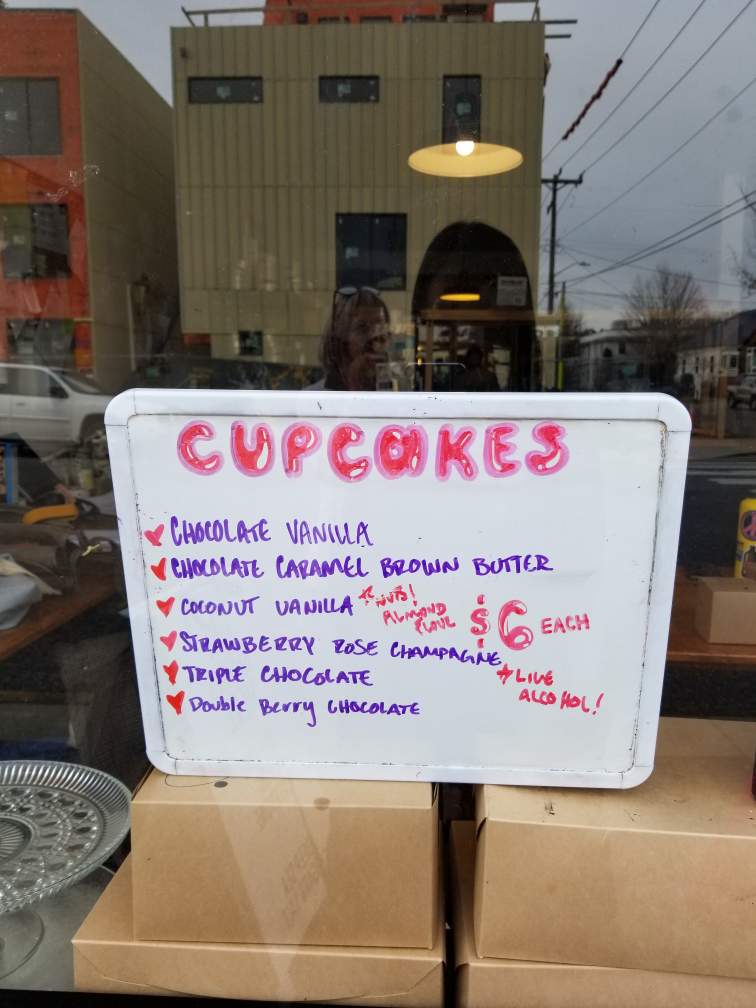 CUPCAKES
CHOCOLATE VANILLA
CHOCOLATE CARAMEL BROWN BUTTER
COCONUT VANILLA * NUTS!
ALMOND
FLOUR
$6 EACH
STRAWBERRY ROSE CHAMPAGNE
* LIVE
ALCOHOL!
TRIPLE CHOCOLATE
Double Berry CHOCOLATE